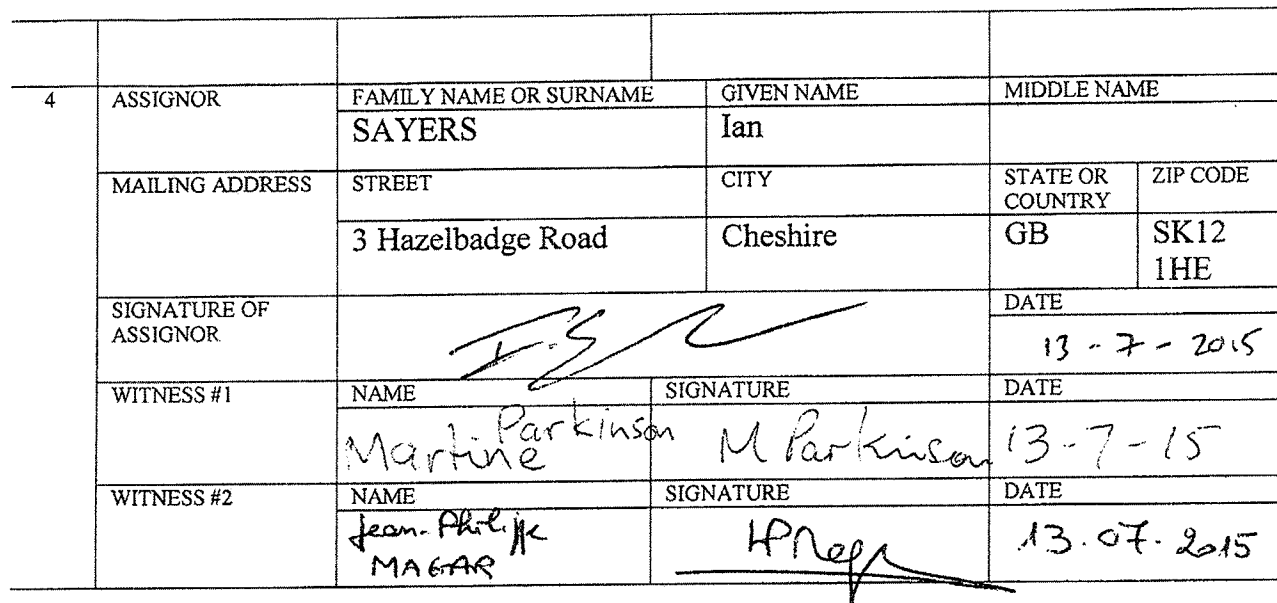 4 ASSIGNOR FAMILY NAME OR SURNAME GIVEN NAME MIDDLE NAME
SAYERS Ian
MAILING ADDRESS STREET CITY STATE OR COUNTRY ZIP CODE
3 Hazelbadge Road Cheshire GB SK12 1HE
SIGNATURE OF ASSIGNOR DATE
13-7-2015
WITNESS #1 NAME SIGNATURE DATE
Martine Parkinson M Parkinson 13-7-15
WITNESS #2 NAME SIGNATURE DATE
Jean-Philippe MAGAR 13.07.2015